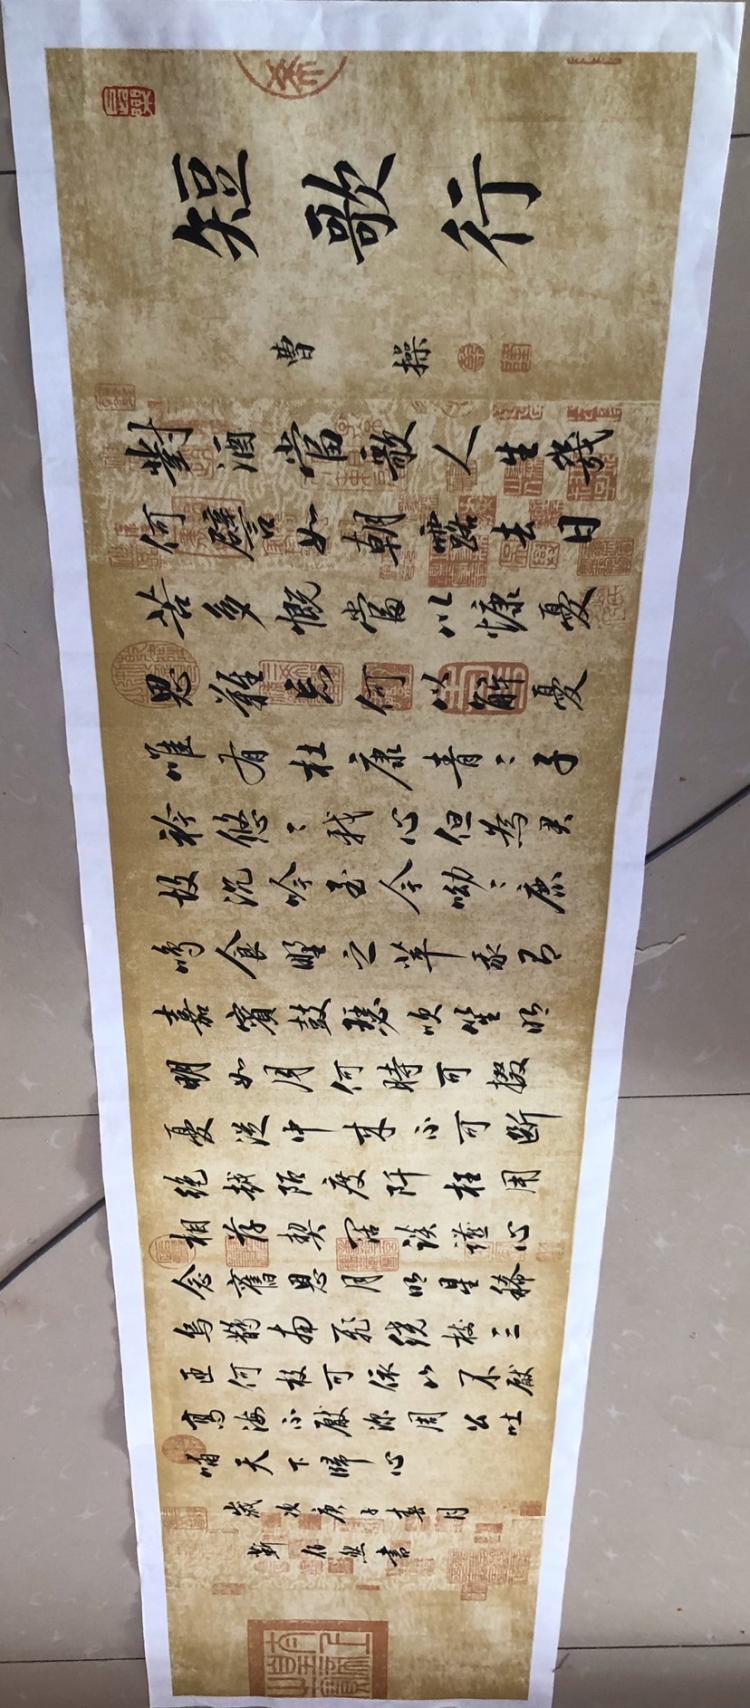 短歌行
曹操
對酒當歌人生幾
何譬如朝露去日
苦多慨當以慷憂
思難忘何以解憂
唯有杜康青〻子
衿悠〻我心但為君
故沉吟至今呦〻鹿
鳴食野之苹我有
嘉賓鼓瑟吹笙明
明如月何時可掇
憂從中來不可斷
絕越陌度阡枉用
相存契闊談讌心
念舊恩月明星稀
烏鵲南飛繞樹三
匝何枝可依山不厭
高海不厭深周公吐
哺天下歸心
歲次庚子春月
靳書